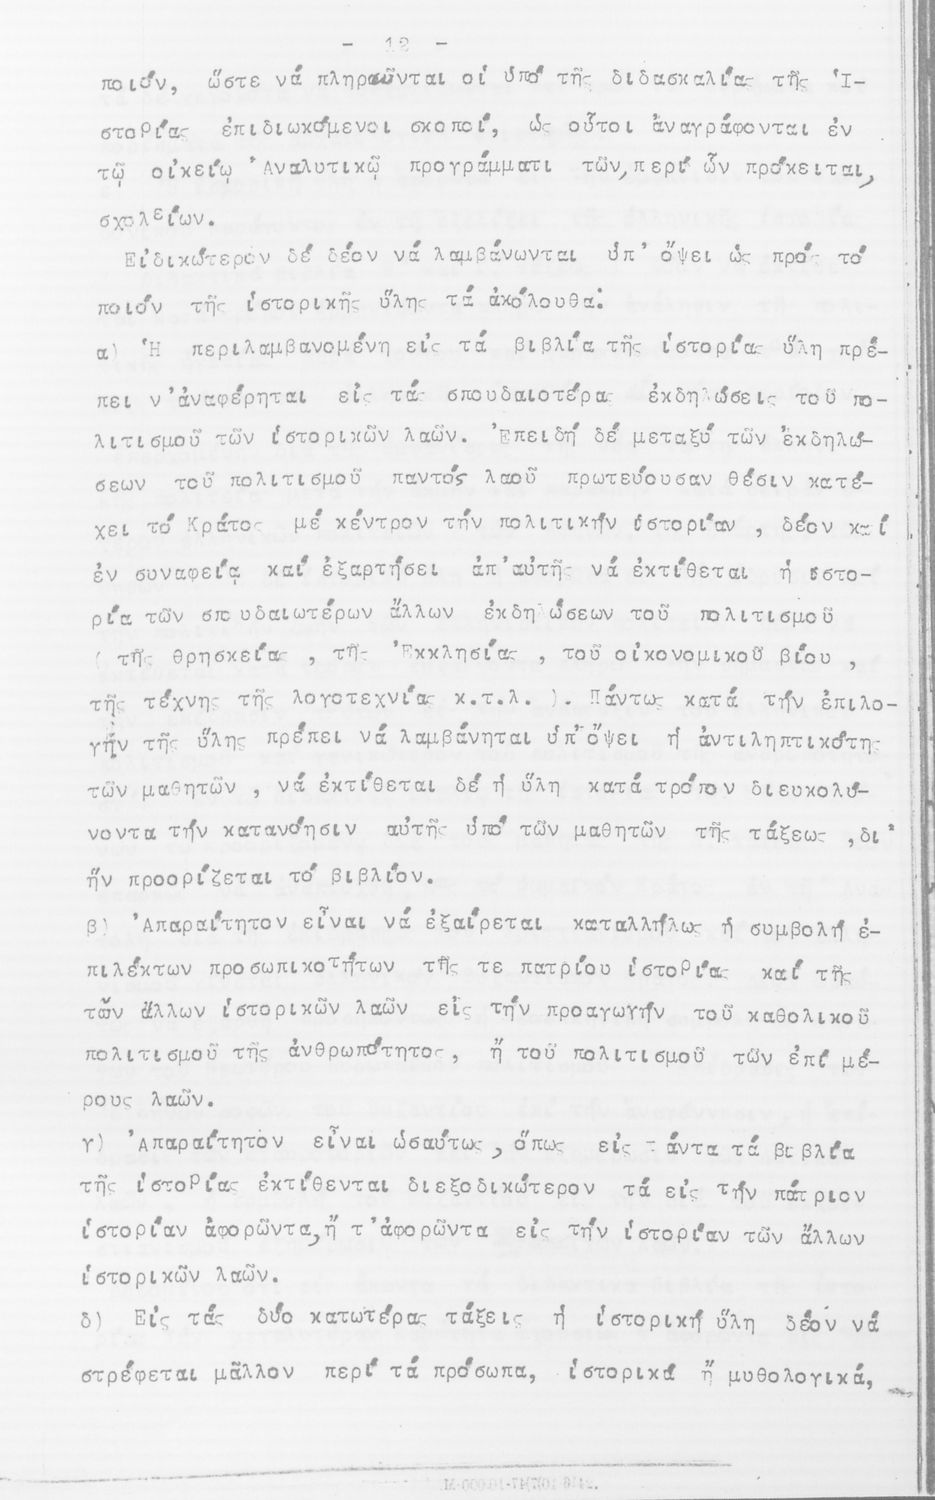 - 12 -
ποιόν, ὥστε νά πληρῶνται οἱ ὑπό τῆς διδασκαλίας τῆς Ἱ-
στορίας ἐπιδιωκόμενοι σκοποί, ὡς οὗτοι ἀναγράφονται ἐν
τῷ οἰκείῳ Ἀναλυτικῷ προγράμματι τῶν, περί ὧν πρόκειται,
σχολείων.
Εἰδικώτερον δέ δέον νά λαμβάνωνται ὑπ' ὄψει ὡς πρός τό
ποιόν τῆς ἱστορικῆς ὕλης τά ἀκόλουθα:
α) Ἡ περιλαμβανομένη εἰς τά βιβλία τῆς ἱστορίας ὕλη πρέ-
πει ν'ἀναφέρηται εἰς τάς σπουδαιοτέρας ἐκδηλώσεις τοῦ πο-
λιτισμοῦ τῶν ἱστορικῶν λαῶν. Ἐπειδή δέ μεταξύ τῶν ἐκδηλώ-
σεων τοῦ πολιτισμοῦ παντός λαοῦ πρωτεύουσαν θέσιν κατέ-
χει τό Κράτος μέ κέντρον τήν πολιτικήν ἱστορίαν , δέον καί
ἐν συναφείᾳ καί ἐξαρτήσει ἀπ'αὐτῆς νά ἐκτίθεται ἡ ἱστο-
ρία τῶν σπουδαιωτέρων ἄλλων ἐκδηλώσεων τοῦ πολιτισμοῦ
( τῆς θρησκείας , τῆς Ἐκκλησίας , τοῦ οἰκονομικοῦ βίου ,
τῆς τέχνης τῆς λογοτεχνίας κ.τ.λ. ). Πάντως κατά τήν ἐπιλο-
γήν τῆς ὕλης πρέπει νά λαμβάνηται ὑπ'ὄψει ἡ ἀντιληπτικότης
τῶν μαθητῶν , νά ἐκτίθεται δέ ἡ ὕλη κατά τρόπον διευκολύ-
νοντα τήν κατανόησιν αὐτῆς ὑπό τῶν μαθητῶν τῆς τάξεως ,δι'
ἥν προορίζεται τό βιβλίον.
β) Ἀπαραίτητον εἶναι νά ἐξαίρεται καταλλήλως ἡ συμβολή ἐ-
πιλέκτων προσωπικοτήτων τῆς τε πατρίου ἱστορίας καί τῆς
τῶν ἄλλων ἱστορικῶν λαῶν εἰς τήν προαγωγήν τοῦ καθολικοῦ
πολιτισμοῦ τῆς ἀνθρωπότητος, ἤ τοῦ πολιτισμοῦ τῶν ἐπί μέ-
ρους λαῶν.
γ) Ἀπαραίτητον εἶναι ὡσαύτως, ὅπως εἰς πάντα τά βιβλία
τῆς ἱστορίας ἐκτίθενται διεξοδικώτερον τά εἰς τήν πάτριον
ἱστορίαν ἀφορῶντα, ἤ τ'ἀφορῶντα εἰς τήν ἱστορίαν τῶν ἄλλων
ἱστορικῶν λαῶν.
δ) Εἰς τάς δύο κατωτέρας τάξεις ἡ ἱστορική ὕλη δέον νά
στρέφεται μᾶλλον περί τά πρόσωπα, ἱστορικά ἤ μυθολογικά,